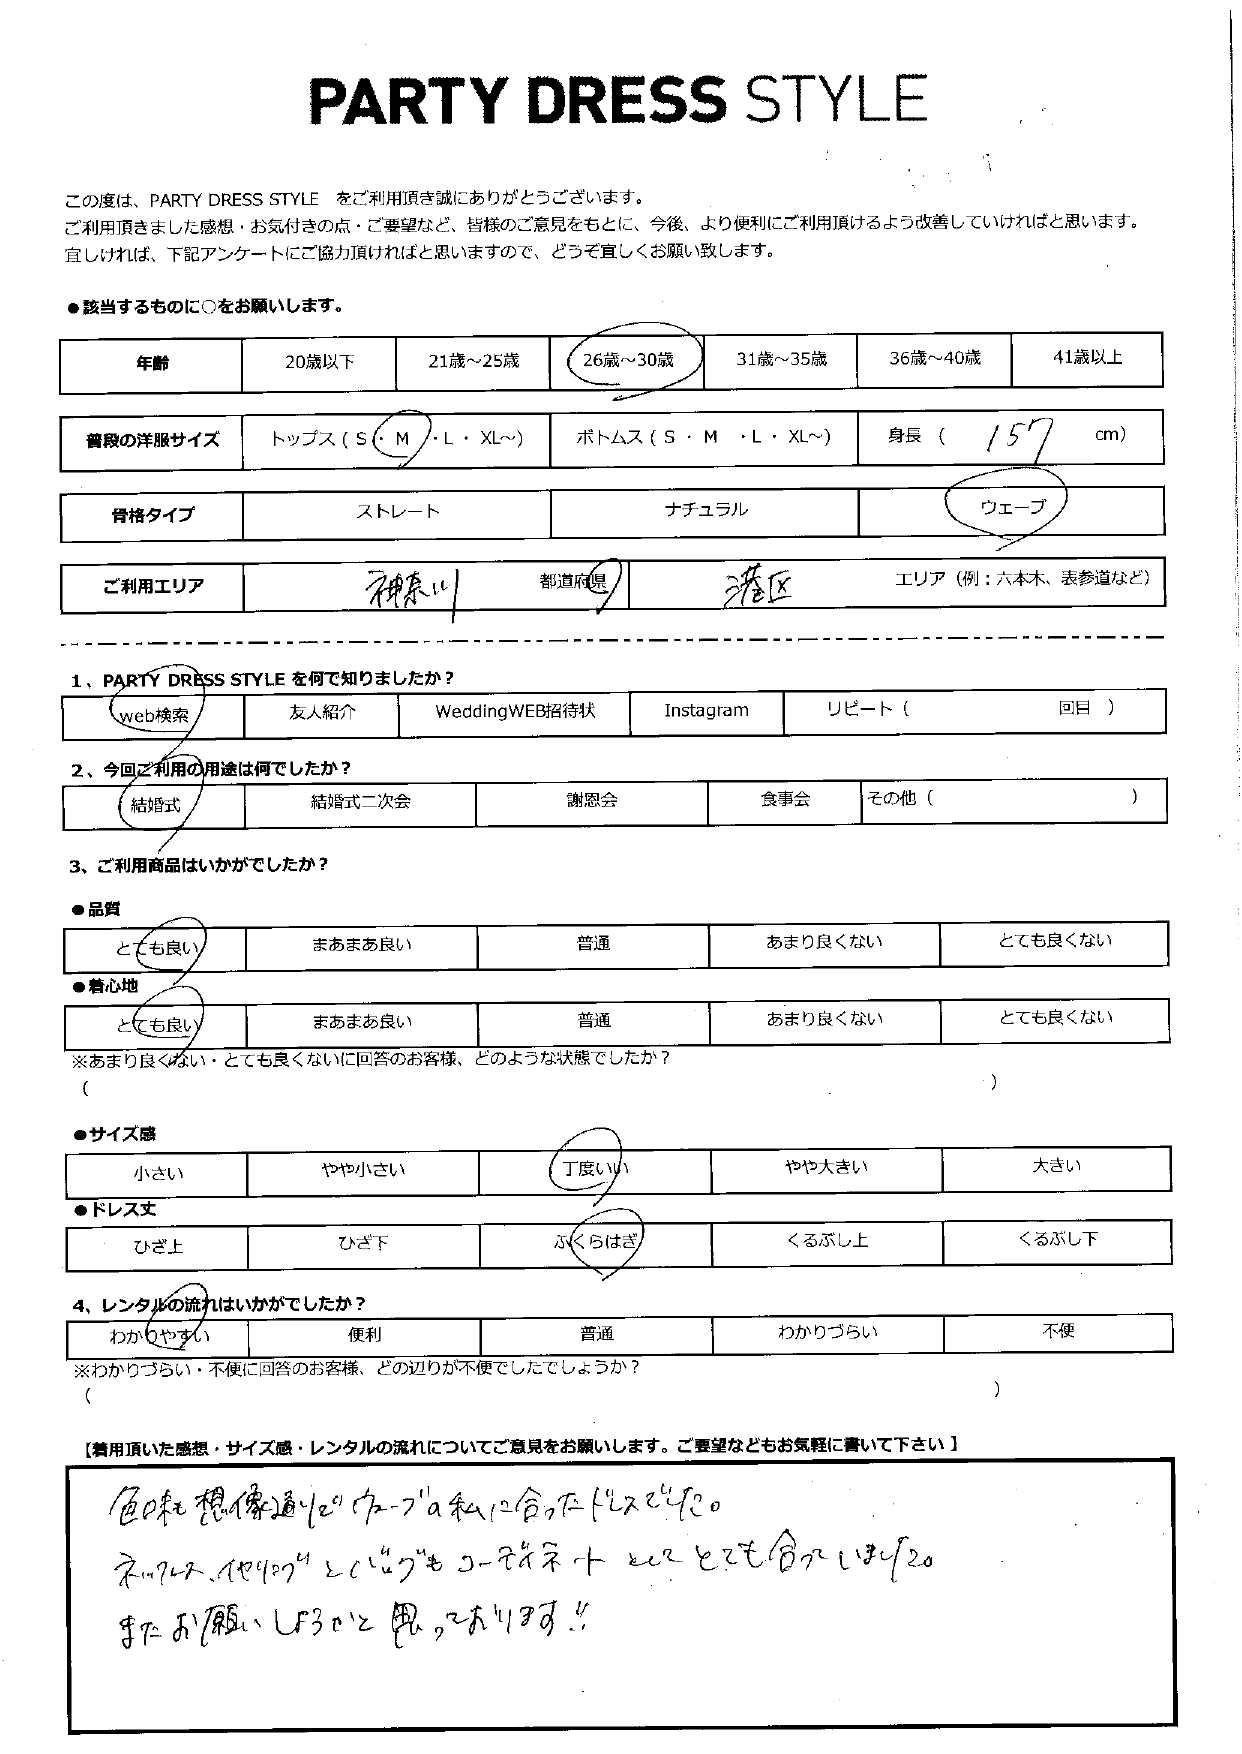 PARTY DRESS STYLE
この度は、PARTY DRESS STYLE をご利用頂き誠にありがとうございます。
ご利用頂きました感想・お気付きの点・ご要望など、皆様のご意見をもとに、今後、より便利にご利用頂けるよう改善していければと思います。
宜しければ、下記アンケートにご協力頂ければと思いますので、どうぞ宜しくお願い致します。
●該当するものに○をお願いします。
年齢 20歳以下 21歳～25歳 26歳～30歳 31歳～35歳 36歳～40歳 41歳以上
普段の洋服サイズ トップス ( S ・ M ・ L ・ XL～) ボトムス ( S ・ M ・ L ・ XL～) 身長 ( 157 cm)
骨格タイプ ストレート ナチュラル ウェーブ
ご利用エリア 神奈川 都道府県 港区 エリア（例：六本木、表参道など）
1、PARTY DRESS STYLE を何で知りましたか？
web検索 友人紹介 WeddingWEB招待状 Instagram リピート ( 回目 )
2、今回ご利用の用途は何でしたか？
結婚式 結婚式二次会 謝恩会 食事会 その他 ( )
3、ご利用商品はいかがでしたか？
●品質
とても良い まあまあ良い 普通 あまり良くない とても良くない
●着心地
とても良い まあまあ良い 普通 あまり良くない とても良くない
※あまり良くない・とても良くないに回答のお客様、どのような状態でしたか？
( )
●サイズ感
小さい やや小さい 丁度いい やや大きい 大きい
●ドレス丈
ひざ上 ひざ下 ふくらはぎ くるぶし上 くるぶし下
4、レンタルの流れはいかがでしたか？
わかりやすい 便利 普通 わかりづらい 不便
※わかりづらい・不便に回答のお客様、どの辺りが不便でしたでしょうか？
( )
【着用頂いた感想・サイズ感・レンタルの流れについてご意見をお願いします。ご要望などもお気軽に書いて下さい】
色味も想像通りでウェーブの私に合ったドレスでした。
ネックレス、イヤリングとバッグもコーディネートとしてとても合っていました。
またお願いしようかと思っております!!